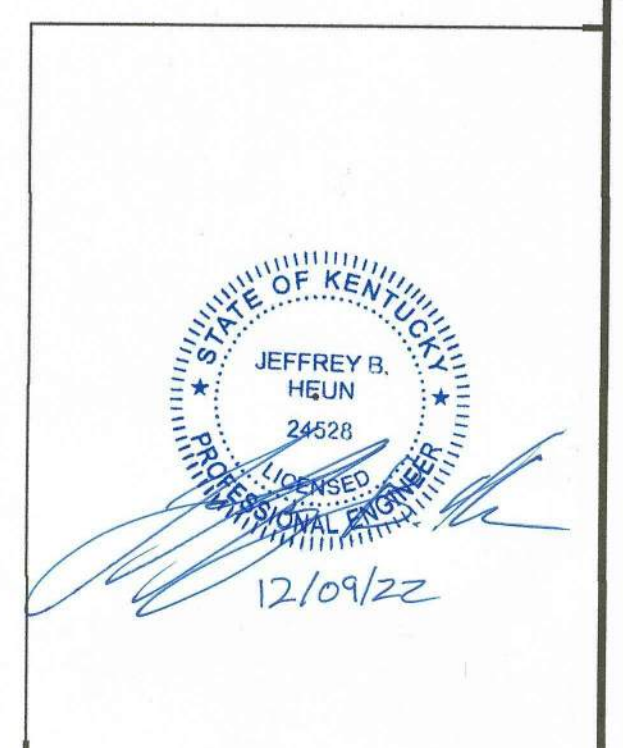 STATE OF KENTUCKY
JEFFREY B.
HEUN
24528
LICENSED
PROFESSIONAL ENGINEER
12/09/22